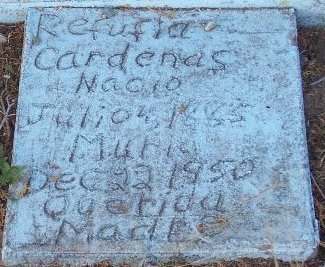 Refugia
Cardenas
Nacio
Julio 4, 1865
Murio
Dec 22 1950
Querida
Madre